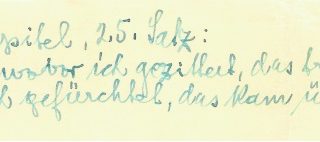 pitel, 25. Satz:
wovor ich gezittert, das
gefürchtet, das kam ü